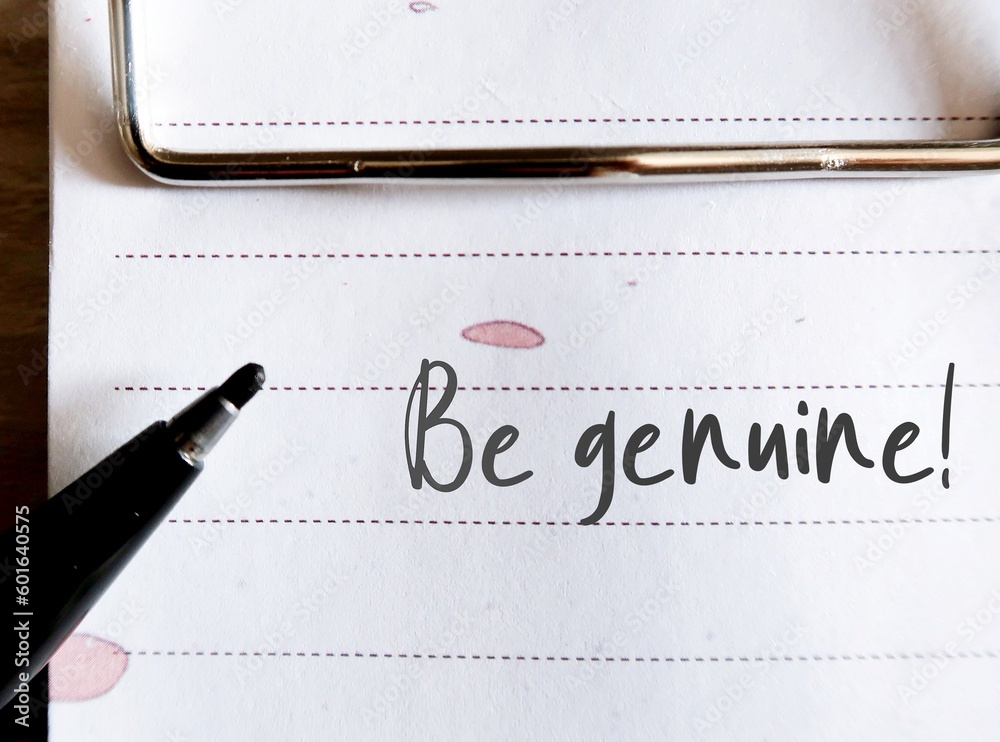 Be genuine!
Adobe Stock | #601640575